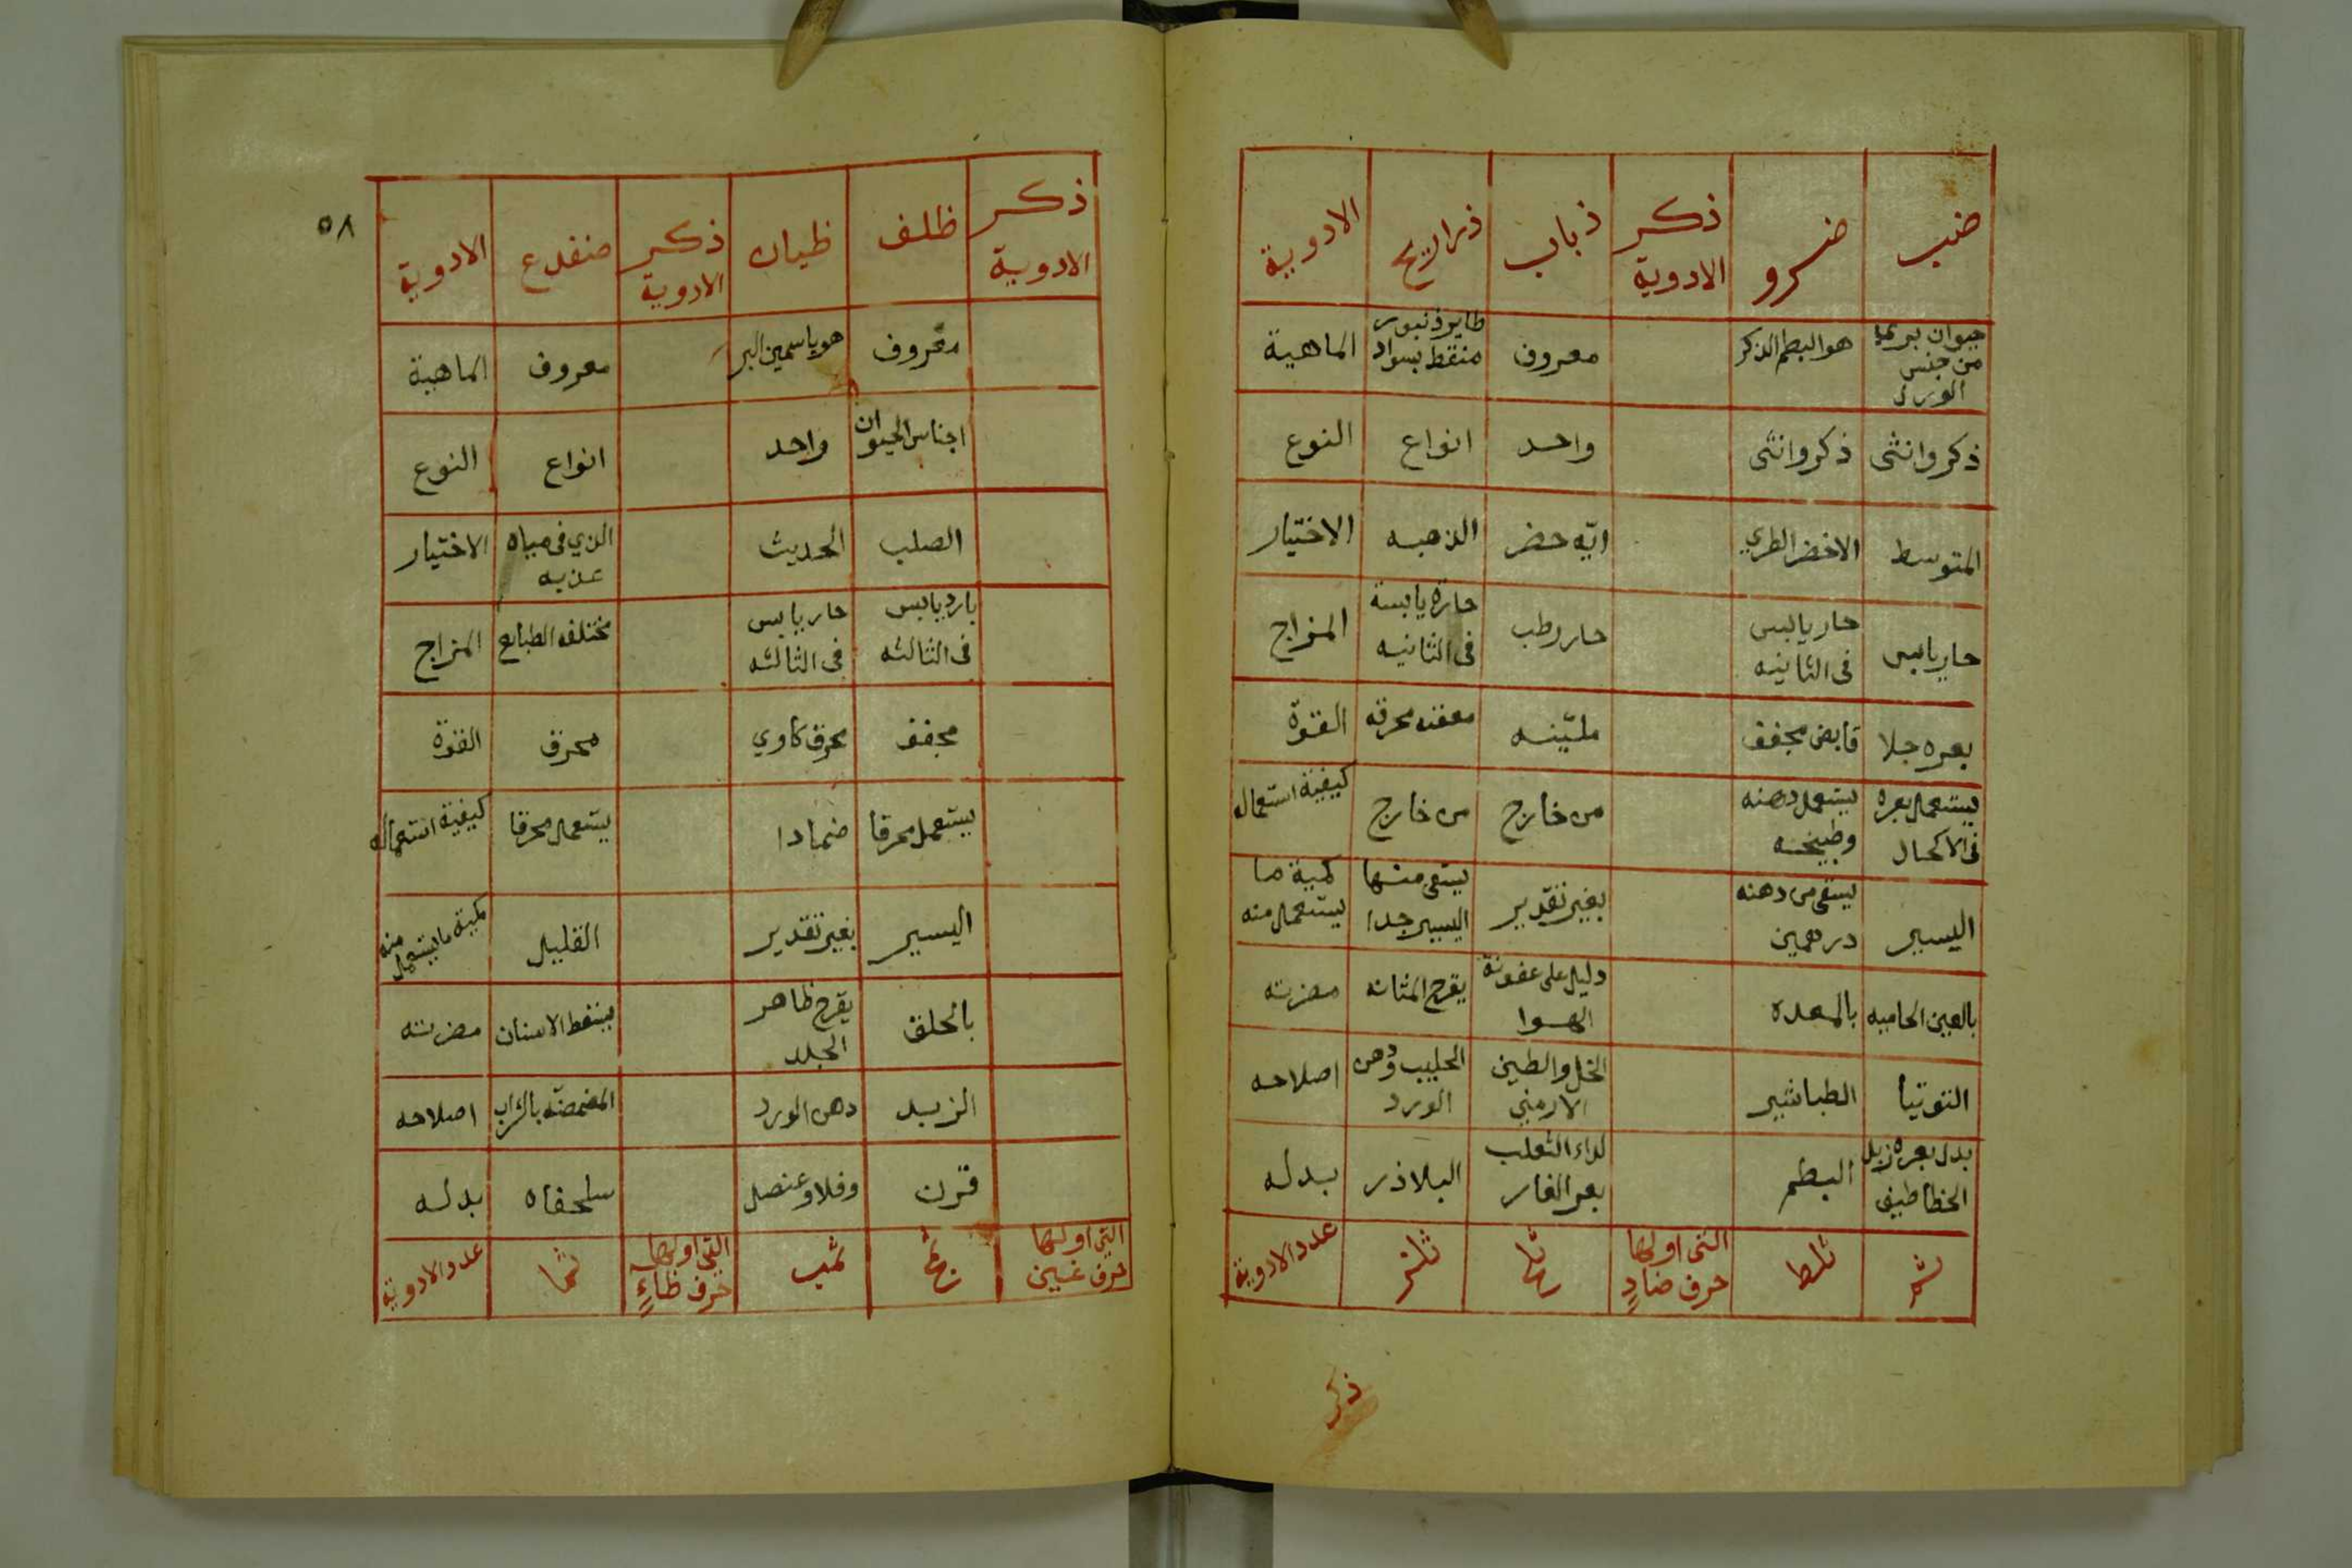 ضب | ضرو | ذكر الادوية | ذباب | ذراريح | الادوية
حيوان بري من جنس الورل | هو البطم الذكر | | معروف | طاير ذنبور منقط بسواد | الماهية
ذكر وانثى | ذكر وانثى | | واحد | انواع | النوع
المتوسط | الاخضر الطري | | ايّه حضر | الذهبيه | الاختيار
حار يابس | حار يابس فى الثانيه | | حار رطب | حارة يابسة فى الثانيه | المزاج
بعره جلا | قابض مجفف | | مليّنه | معفنه محرقه | القوة
يستعمل بعره فى الاكحال | يستعمل دهنه وطبيخه | | من خارج | من خارج | كيفية استعماله
اليسير | يسقى من دهنه درهمين | | بغير تقدير | يسقى منها اليسير جدا | كمية ما يستعمل منه
بالعين الحاميه | بالمعدة | | دليل على عفونة الهوا | يقرح المثانه | مضرته
التوتيا | الطباشير | | الخل والطين الارمني | الحليب ودهن الورد | اصلاحه
بدل بعره زبل الخطاطيف | البطم | | لداء الثعلب بعر الفار | البلاذر | بدله
ثم | ثلط | التى اولها حرف ضادٍ | ثلح | ثلز | عدد الادوية
ذكر
٥٨
ذكر الادوية | ظلف | ظيان | ذكر الادوية | ضفدع | الادوية
| معروف | هو ياسمين البر | | معروف | الماهية
| اجناس الحيوان | واحد | | انواع | النوع
| الصلب | الحديث | | الذي فى مياه عذبه | الاختيار
| بارد يابس فى الثالثه | حار يابس فى الثالثه | | مختلفه الطبايع | المزاج
| مجفف | محرق كاوي | | محرق | القوة
| يستعمل محرقا | ضمادا | | يستعمل محرقا | كيفية استعماله
| اليسير | بغير تقدير | | القليل | كمية ما يستعمل منه
| بالحلق | يقرح ظاهر الجلد | | يسقط الاسنان | مضرته
| الزبد | دهن الورد | | المضمضة بالشراب | اصلاحه
| قرن | وفلا وعنصل | | سلحفاه | بدله
التي اولها حرف غين | ثمج | ثمب | التي اولها حرف ظاءٍ | ثما | عدد الادوية